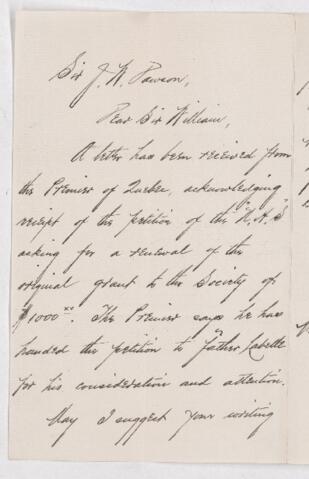 Sir J. W. Dawson,
Dear Sir William,
A letter has been received from
the Premier of Quebec, acknowledging
receipt of the petition of the N.H.S
asking for a renewal of the
original grant to the Society of
$1000 xx. The Premier says he has
handed the petition to Father Labelle
for his consideration and attention.
May I suggest your writing